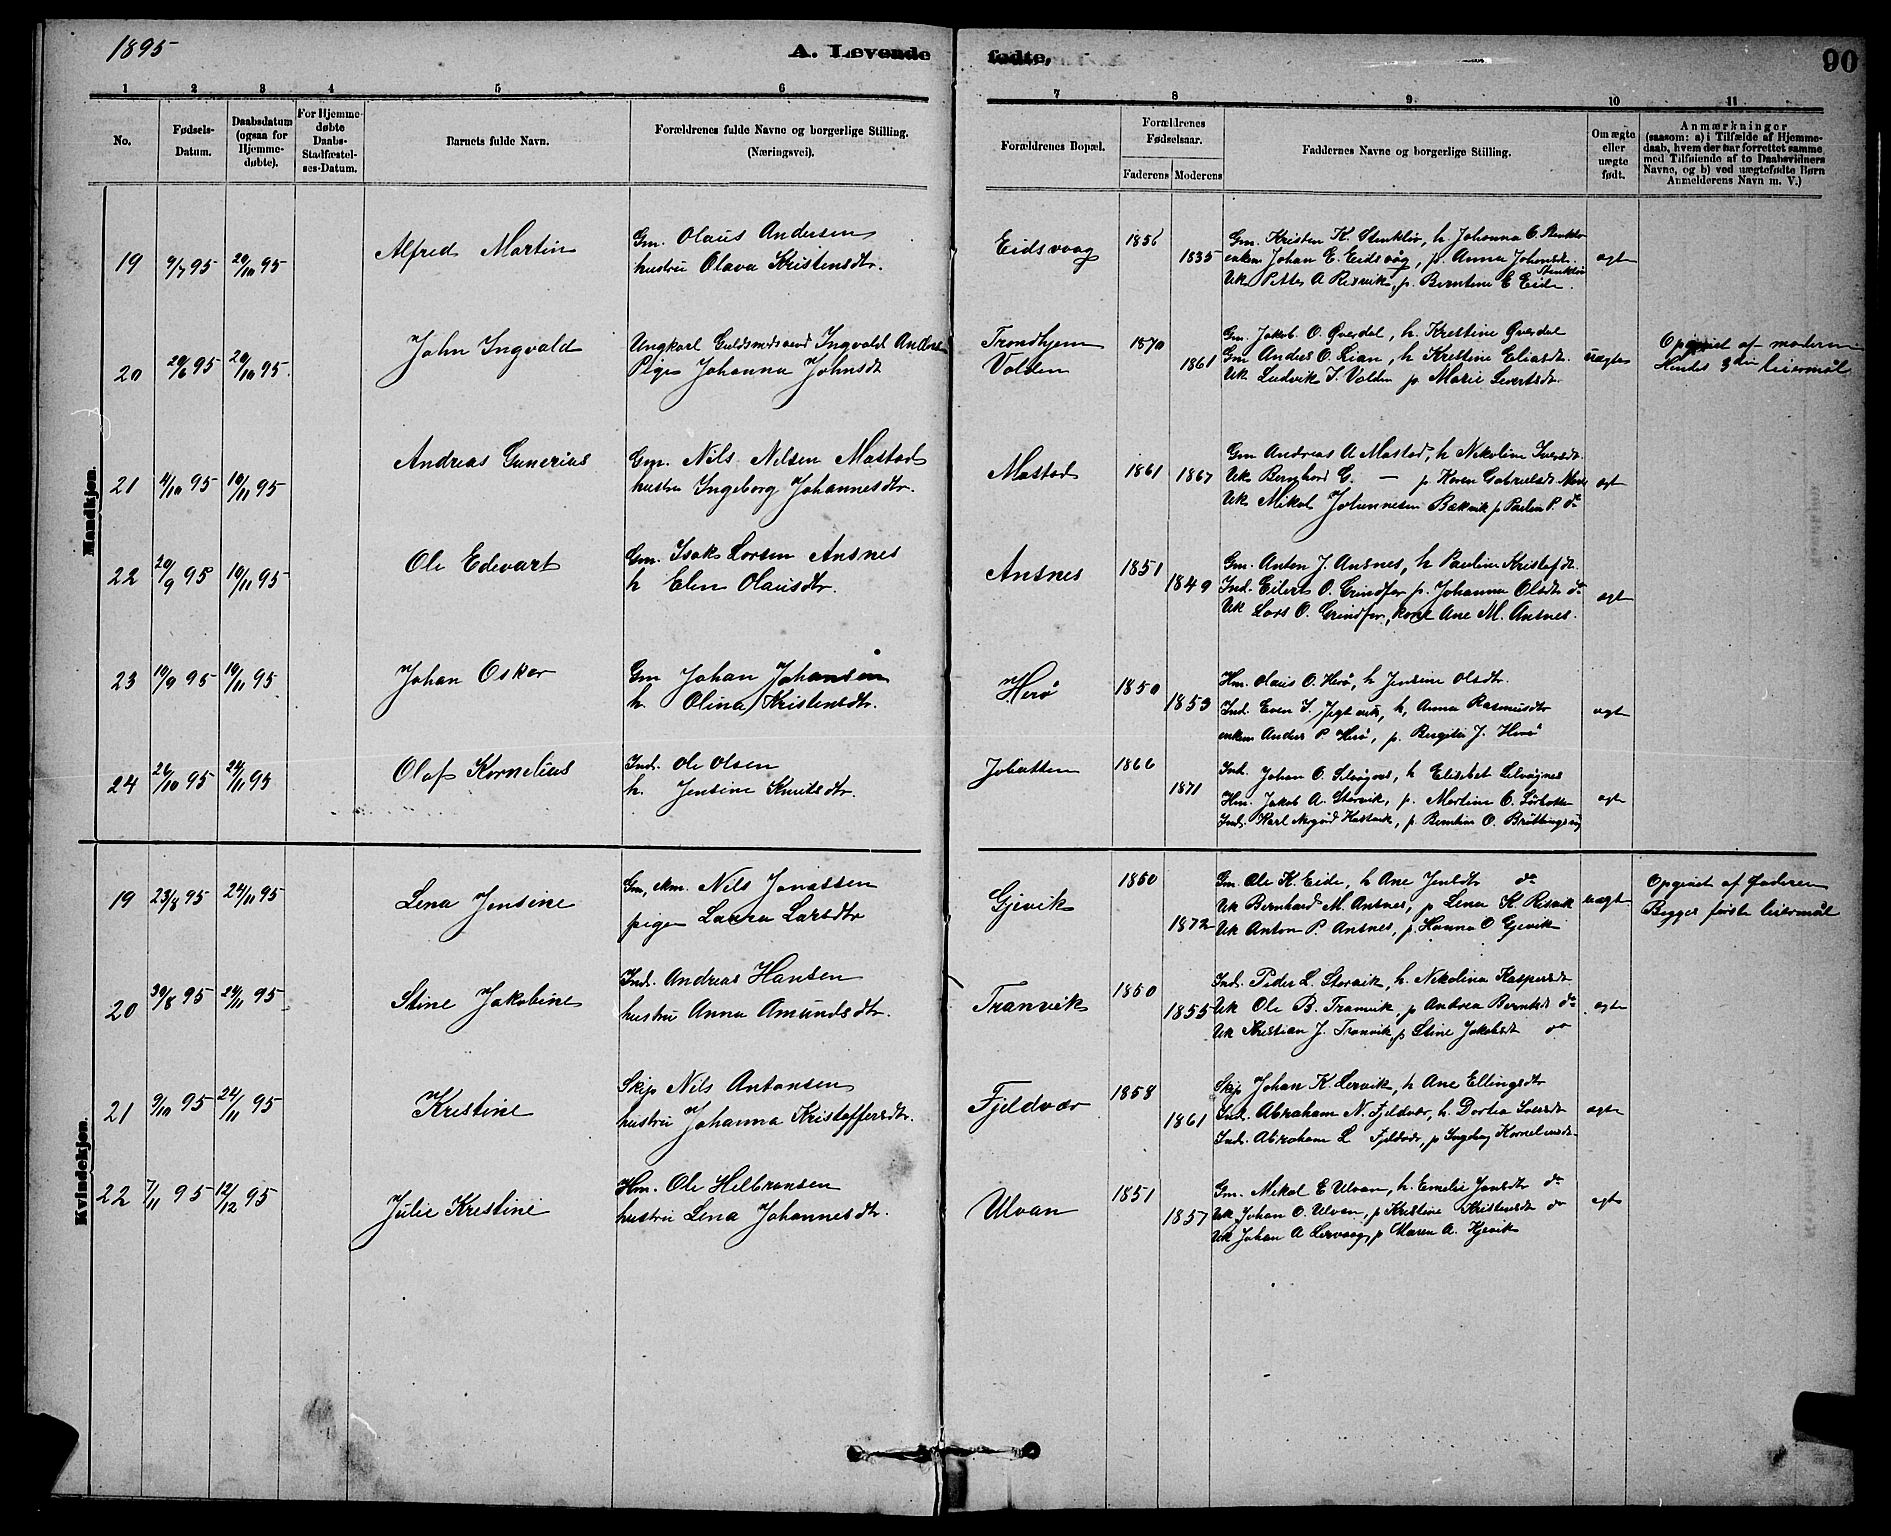 1895
A. Levende fødte,
90
1 2 3 4 5 6 7 8 9 10 11
No.
Fødsels-Datum.
Daabsdatum (ogsaa for Hjemme-døbte).
For Hjemme-døbte Daabs-Stadfæstel-ses-Datum.
Barnets fulde Navn.
Forældrenes fulde Navne og borgerlige Stilling. (Næringsvei).
Forældrenes Bopæl.
Forældrenes Fødselsaar.
Faderens Moderens
Faddernes Navne og borgerlige Stilling.
Om ægte eller uægte født.
Anmærkninger (saasom: a) i Tilfælde af Hjemme-daab, hvem der har forrettet samme, med Tilføiende af to Daabsvidners Navne, og b) ved uægtefødte Børn Anmelderens Navn m. V.)
Mandkjøn.
19 9/7 95 20/10 95 Alfred Martin
Gm. Olaus Andersen
hustru Olava Kristensdtr.
Eidsvaag 1856 1835
Gm. Kristen K. Stenklev, h Johanna O. Stenklev
enkem Johan E. Eidsvåg, p. Anna Johansdt. Stenklev
Uk Petter A Resvik, p. Berntine E Eide.
ægte
20 20/6 95 20/10 95. John Ingvald
Ungkarl Guldsmedsvend Ingvald Anders
Pige Johanna Johnsdt
Trondhjem
Volden
1870 1861
Gm. Jakob O. Øverdal, h. Kristine Øverdal
Gm Anders O. Lian, h Kristine Eliasdt.
Uk Ludvik J. Volden p Marie Sivertsdt.
uægte
Opgivet af moderen
Hendes 3die leiermål
21 4/10 95 10/11 95 Andreas Gunerius
Gm. Nils Nilsen Mastad
hustru Ingeborg Johannesdtr.
Mastad 1861 1867
Gm Andreas A Mastad, h Nikoline Iversdt.
Uk Bernhard G. — p Karen Gabrielsdt
Uk Mikal Johannesen Bækvik p Paulin P. do
ægt
22 20/9 95 10/11 95 Ole Edevart
Gm. Isak Larsen Ansnes
h Elen Olausdtr.
Ansnes 1851 1849
Gm. Anton J. Ansnes, h Pauline Kristofdt.
Ind. Eilert O. Grindfar p. Johanna Olsdtr do
Uk Lars O. Grindfar, kone Ane M. Ansnes.
ægt
23 10/9 95 10/11 95 Johan Oskar
Gm Johan Johansen
h. Olina Kristensdtr.
Herö 1850 1853
Hm. Olaus O. Herö, h Jensine Olsdtr.
Ind. Even I. Jegtvik, h, Anna Rasmusdtr
enkem Anders P. Herö, p. Bergitha J. Herö
ægt
24 26/10 95 24/11 95 Olaf Kornelius
Ind. Ole Olsen
h. Jensine Knutsdtr.
1866 1871
Ind. Johan O. h Elisabet
Hm. Jakob A. Storvik, p. Martine O.
Ind. Karl p. Berntine O.
ægte
Kvindekjøn.
19 23/8 95 24/11 95 Lena Jensine
Gm, ekm. Nils Jonassen
pige Laura Larsdtr
Gjevik 1850 1872
Gm. Ole K. Eide, h Ane Jensdtr do
Uk Bernhard M. Ansnes, p Lena K. Resvik
Uk Anton P. Ansnes, p. Hanna O Gjevik
uægt
Opgivet af faderen
Begges første leiermål
20 30/8 95 24/11 95 Stine Jakobine
Ind. Andreas Hansen
hustru Anna Amundsdtr.
Tranvik 1850 1855
Ind. Peder L. Storvik, h. Nikolina Kaspersdt
Uk Ole B. Tranvik, p Andrea Berntsdt do
Uk Kristian J. Tranvik, p Stine Jakobsdt do
ægte
21 9/10 95 24/11 95 Kristine
Skip Nils Antonsen
hustru Johanna Kristoffersdtr.
Fjeldvær 1858 1861
Skip Johan K. Lervik, h Ane Ellingsdtr
Ind. Abraham N. Fjeldvær, h. Dortea Iversdt
Ind. Abraham L Fjeldvær, p Ingebrg Korneliusdt.
ægte
22 7/11 95 12/12 95 Julie Kristine
Hm. Ole Hilbransen
hustru Lena Johannesdtr.
Ulvan 1851 1857
Gm. Mikal E Ulvan, h. Emelie Jonsdtr do
Uk Johan O. Ulvan, p Kristine Kristensdt do
Uk Johan A Lervaag, p Maren A. Kjevik
ægte